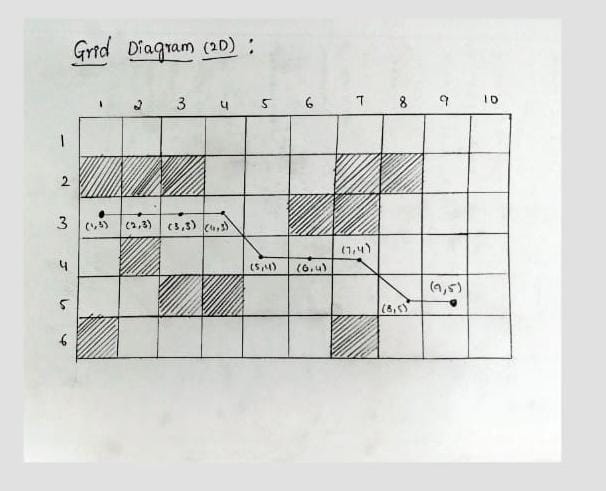 Grid Diagram (2D) :
1 2 3 4 5 6 7 8 9 10
1
2
3 (1,3) (2,3) (3,3) (4,3)
4 (5,4) (6,4) (7,4)
5 (8,5) (9,5)
6